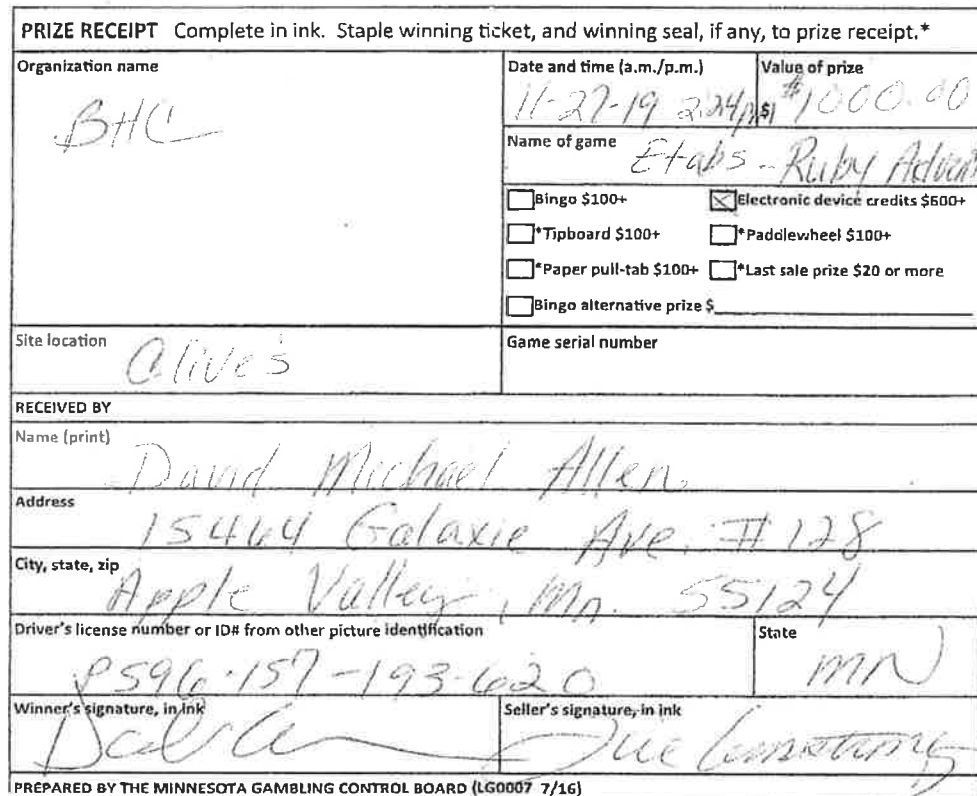 PRIZE RECEIPT Complete in ink. Staple winning ticket, and winning seal, if any, to prize receipt.*
Organization name
BHC
Date and time (a.m./p.m.)
11-27-19 2:24p
Value of prize
$ $1000.00
Name of game
Etabs - Ruby Advent
Bingo $100+
Electronic device credits $600+
*Tipboard $100+
*Paddlewheel $100+
*Paper pull-tab $100+
*Last sale prize $20 or more
Bingo alternative prize $
Site location
Game serial number
RECEIVED BY
Name (print)
David Michael Allen
Address
15464 Galaxie Ave. #128
City, state, zip
Apple Valley, Mn. 55124
Driver's license number or ID# from other picture identification
P596-157-193-620
State
MN
Winner's signature, in ink
Seller's signature, in ink
PREPARED BY THE MINNESOTA GAMBLING CONTROL BOARD (LG0007 7/16)